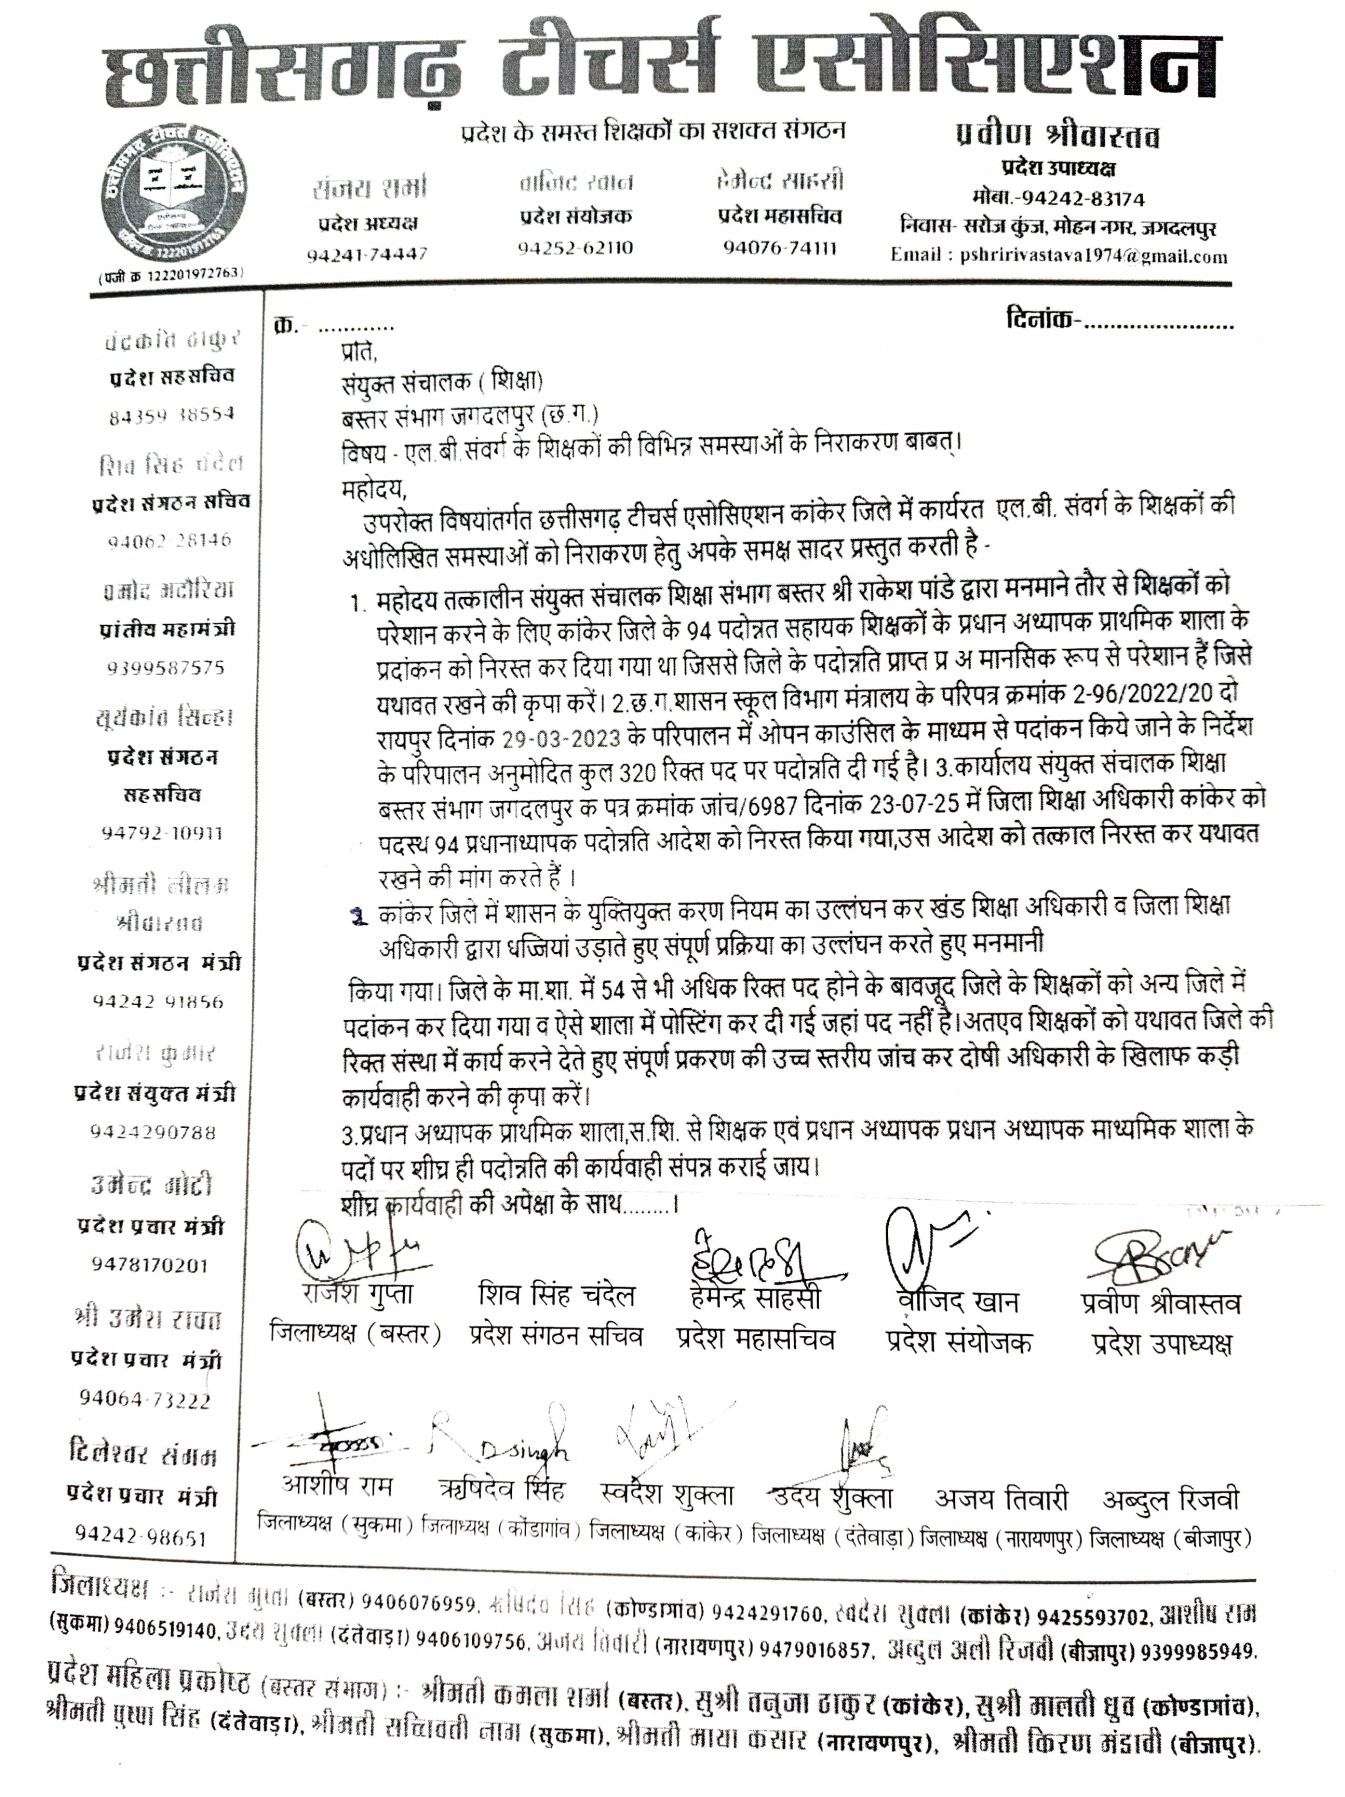 छत्तीसगढ़ टीचर्स एसोसिएशन
प्रदेश के समस्त शिक्षकों का सशक्त संगठन
छत्तीसगढ़ टीचर्स एसोसिएशन
(पजी क्र 122201972763)
संजय शर्मा
प्रदेश अध्यक्ष
94241-74447
वाजिद खान
प्रदेश संयोजक
94252-62110
हेमेन्द साहसी
प्रदेश महासचिव
94076-74111
प्रवीण श्रीवास्तव
प्रदेश उपाध्यक्ष
मोबा.-94242-83174
निवास- सरोज कुंज, मोहन नगर, जगदलपुर
Email : pshririvastava1974@gmail.com
चंद्रकांत ठाकुर
प्रदेश सहसचिव
84359 38554
शिव सिंह चंदेल
प्रदेश संगठन सचिव
94062-28146
प्रमोद भदौरिया
प्रांतीय महामंत्री
9399587575
सूर्यकांत सिन्हा
प्रदेश संगठन
सहसचिव
94792-10911
श्रीमती नीलम
श्रीवास्तव
प्रदेश संगठन मंत्री
94242 91856
राजेश कुमार
प्रदेश संयुक्त मंत्री
9424290788
उमेन्द्र गोटी
प्रदेश प्रचार मंत्री
9478170201
श्री उमेश रावत
प्रदेश प्रचार मंत्री
94064-73222
टिलेश्वर संगम
प्रदेश प्रचार मंत्री
94242-98651
क्र.- ............
दिनांक-.......................
प्रति,
संयुक्त संचालक ( शिक्षा)
बस्तर संभाग जगदलपुर (छ.ग.)
विषय - एल.बी.संवर्ग के शिक्षकों की विभिन्न समस्याओं के निराकरण बाबत्।
महोदय,
उपरोक्त विषयांतर्गत छत्तीसगढ़ टीचर्स एसोसिएशन कांकेर जिले में कार्यरत एल.बी. संवर्ग के शिक्षकों की
अधोलिखित समस्याओं को निराकरण हेतु अपके समक्ष सादर प्रस्तुत करती है -
1. महोदय तत्कालीन संयुक्त संचालक शिक्षा संभाग बस्तर श्री राकेश पांडे द्वारा मनमाने तौर से शिक्षकों को
परेशान करने के लिए कांकेर जिले के 94 पदोन्नत सहायक शिक्षकों के प्रधान अध्यापक प्राथमिक शाला के
प्रदांकन को निरस्त कर दिया गया था जिससे जिले के पदोन्नति प्राप्त प्र अ मानसिक रूप से परेशान हैं जिसे
यथावत रखने की कृपा करें। 2.छ.ग.शासन स्कूल विभाग मंत्रालय के परिपत्र क्रमांक 2-96/2022/20 दो
रायपुर दिनांक 29-03-2023 के परिपालन में ओपन काउंसिल के माध्यम से पदांकन किये जाने के निर्देश
के परिपालन अनुमोदित कुल 320 रिक्त पद पर पदोन्नति दी गई है। 3.कार्यालय संयुक्त संचालक शिक्षा
बस्तर संभाग जगदलपुर क पत्र क्रमांक जांच/6987 दिनांक 23-07-25 में जिला शिक्षा अधिकारी कांकेर को
पदस्थ 94 प्रधानाध्यापक पदोन्नति आदेश को निरस्त किया गया,उस आदेश को तत्काल निरस्त कर यथावत
रखने की मांग करते हैं ।
2 कांकेर जिले में शासन के युक्तियुक्त करण नियम का उल्लंघन कर खंड शिक्षा अधिकारी व जिला शिक्षा
अधिकारी द्वारा धज्जियां उड़ाते हुए संपूर्ण प्रक्रिया का उल्लंघन करते हुए मनमानी
किया गया। जिले के मा.शा. में 54 से भी अधिक रिक्त पद होने के बावजूद जिले के शिक्षकों को अन्य जिले में
पदांकन कर दिया गया व ऐसे शाला में पोस्टिंग कर दी गई जहां पद नहीं है।अतएव शिक्षकों को यथावत जिले की
रिक्त संस्था में कार्य करने देते हुए संपूर्ण प्रकरण की उच्च स्तरीय जांच कर दोषी अधिकारी के खिलाफ कड़ी
कार्यवाही करने की कृपा करें।
3.प्रधान अध्यापक प्राथमिक शाला,स.शि. से शिक्षक एवं प्रधान अध्यापक प्रधान अध्यापक माध्यमिक शाला के
पदों पर शीघ्र ही पदोन्नति की कार्यवाही संपन्न कराई जाय।
शीघ्र कार्यवाही की अपेक्षा के साथ........।
राजेश गुप्ता शिव सिंह चंदेल हेमेन्द्र साहसी वाजिद खान प्रवीण श्रीवास्तव
जिलाध्यक्ष (बस्तर) प्रदेश संगठन सचिव प्रदेश महासचिव प्रदेश संयोजक प्रदेश उपाध्यक्ष
आशीष राम ऋषिदेव सिंह स्वदेश शुक्ला उदय शुक्ला अजय तिवारी अब्दुल रिजवी
जिलाध्यक्ष (सुकमा) जिलाध्यक्ष (कोंडागांव) जिलाध्यक्ष (कांकेर) जिलाध्यक्ष (दंतेवाड़ा) जिलाध्यक्ष (नारायणपुर) जिलाध्यक्ष (बीजापुर)
जिलाध्यक्ष :- राजेश गुप्ता (बस्तर) 9406076959, ऋषिदेव सिंह (कोण्डागांव) 9424291760, स्वदेश शुक्ला (कांकेर) 9425593702, आशीष राम
(सुकमा) 9406519140, उदय शुक्ला (दंतेवाड़ा) 9406109756, अजय तिवारी (नारायणपुर) 9479016857, अब्दुल अली रिजवी (बीजापुर) 9399985949.
प्रदेश महिला प्रकोष्ठ (बस्तर संभाग) :- श्रीमती कमला शर्मा (बस्तर), सुश्री तनुजा ठाकुर (कांकेर), सुश्री मालती ध्रुव (कोण्डागांव),
श्रीमती पुष्पा सिंह (दंतेवाड़ा), श्रीमती सच्चिवती नाग (सुकमा), श्रीमती माया कसार (नारायणपुर), श्रीमती किरण मंडावी (बीजापुर).